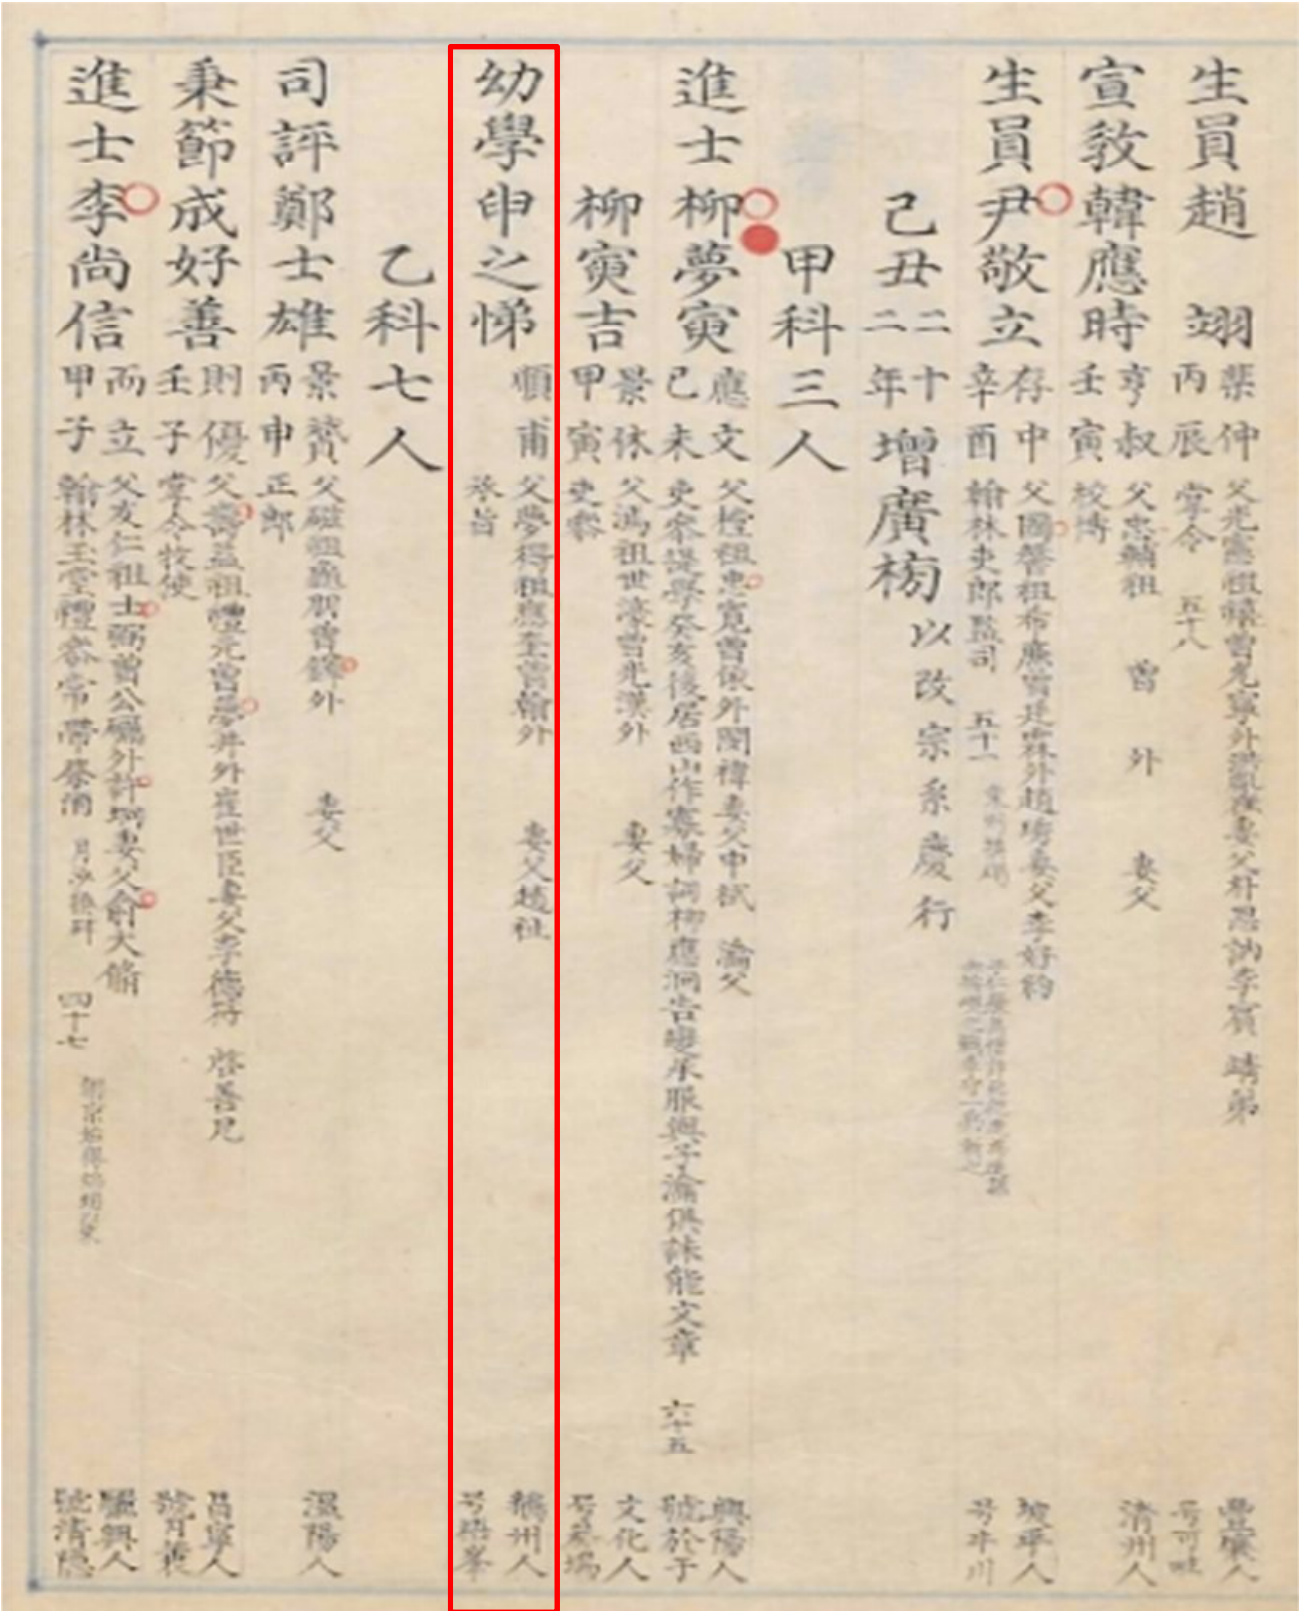 生員趙 翊 棐仲 丙辰 父光憲祖禛曾允寧外洪胤崔妻父朴思訥李賓 靖弟 掌令 五十八 豊壤人 号可畦
宣敎韓應時 亨叔 壬寅 父忠輔祖 曾 外 妻父 校博 淸州人
生員尹敬立 存中 辛酉 父國馨祖希廉曾廷霖外趙 妻父李好約 翰林吏郎監司 五十一 坡平人 号 川
己丑二十二年增廣榜 以改宗系慶行
甲科三人
進士柳夢寅 應文 己未 父樘祖忠寬曾依外閔褘妻父申栻 瀹父 吏叅提學癸亥後居西山作寡婦詞柳應泂告變承服與子瀹俱誅能文章 六十五 興陽人 號於于
柳寅吉 景休 甲寅 父溈祖世濠曾光漢外 妻父 吏叅 文化人 号葵塢
幼學申之悌 順甫 父夢得祖應奎曾翰外 妻父趙祉 承旨 鵝州人 号梧峯
乙科七人
司評鄭士雄 景賛 丙申 父磁祖 朋曾鐸外 妻父 正郎 溫陽人
秉節成好善 則優 壬子 父壽益祖禮元曾夢井外崔世臣妻父李德符 啓善兄 掌令牧使 昌寧人 號月蓑
進士李尙信 而立 甲子 父友仁祖士弼曾公礪外許 妻父俞大脩 翰林玉堂禮叅 四十七 驪興人 號淸隱